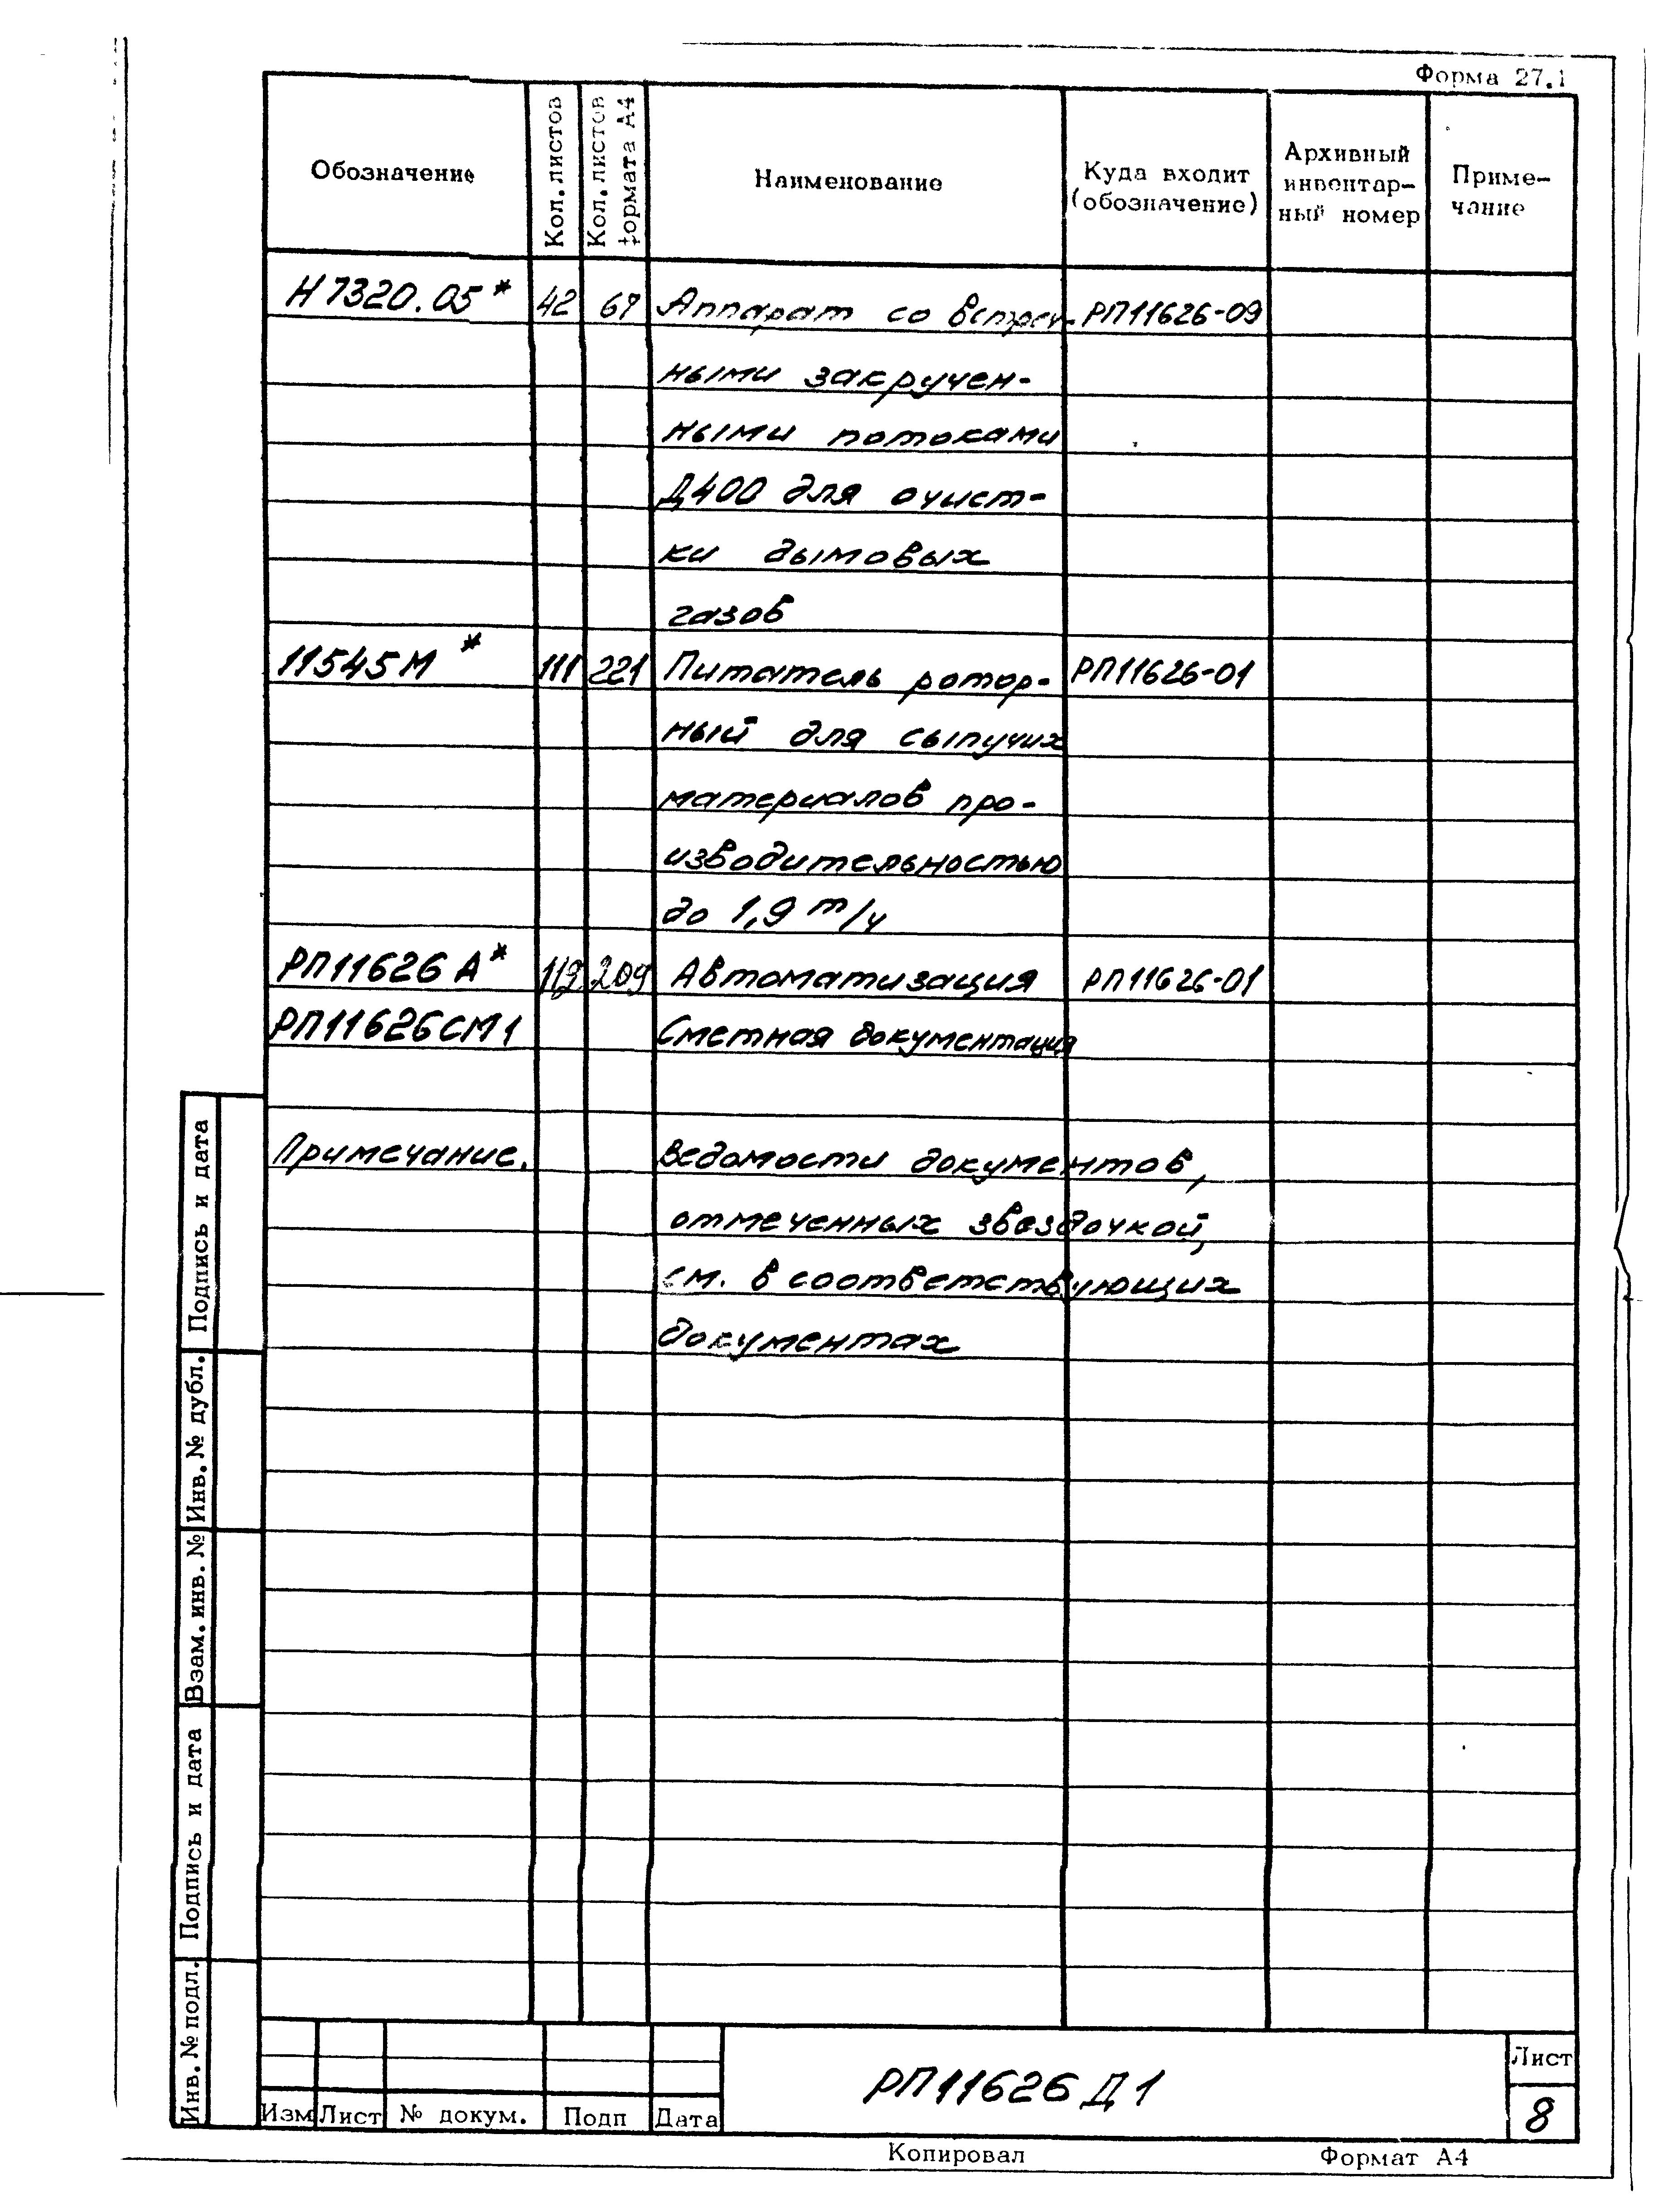 Форма 27.1
Обозначение
Кол.листов
Кол.листов
формата А4
Наименование
Куда входит
(обозначение)
Архивный
инвентар-
ный номер
Приме-
чание
Н7320.05* 42 67 Аппарат со встреч- РП11626-09
ными закручен-
ными потоками
Д400 для очист-
ки дымовых
газов
11545М* 111 221 Питатель ротор- РП11626-01
ный для сыпучих
материалов про-
изводительностью
до 1,9 т/ч
РП11626А* 119 209 Автоматизация РП11626-01
РП11626СМ1 Сметная документация
Примечание. Ведомости документов,
отмеченных звездочкой,
см. в соответствующих
документах
Подпись и дата
Инв. № дубл.
Взам. инв. №
Подпись и дата
Инв. № подл.
Изм Лист № докум. Подп Дата
РП11626Д1
Лист
8
Копировал Формат А4